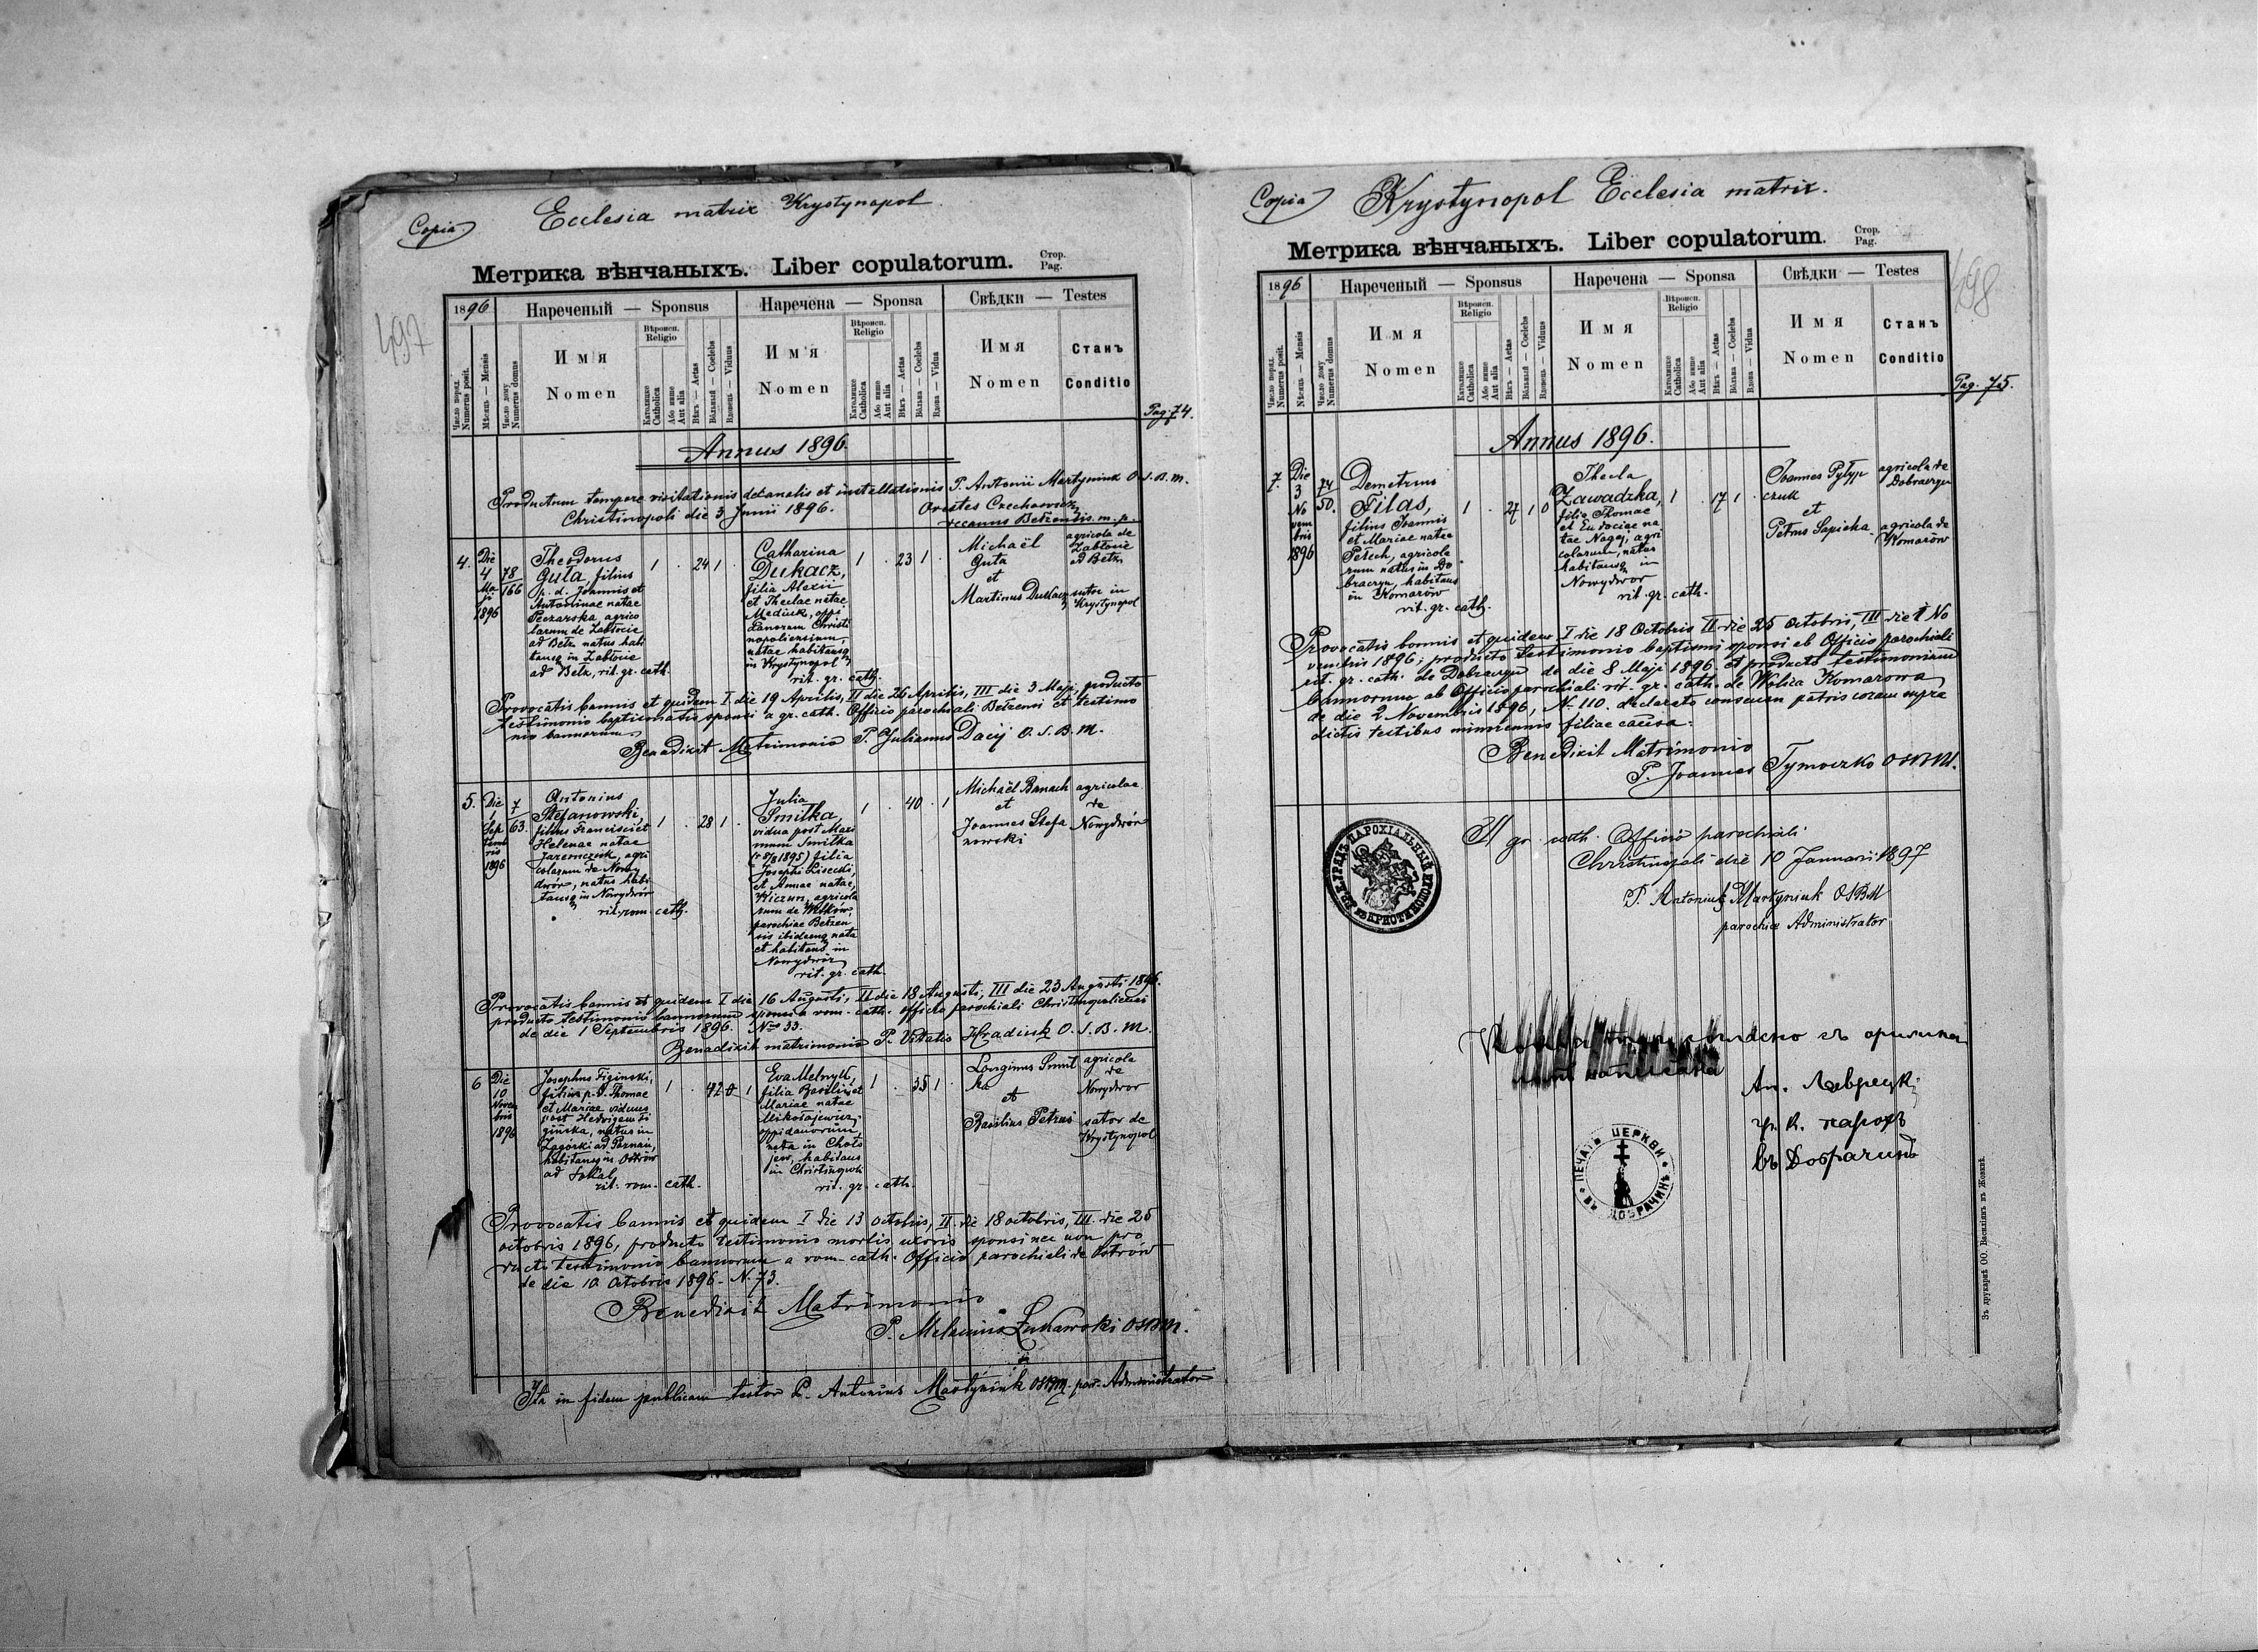 Copia
Ecclesia matrix Krystynopol
Метрика вѣнчаныхъ. Liber copulatorum. Стор. Pag.
497
1896 Нареченый — Sponsus Наречена — Sponsa Свѣдки — Testes
Число поряд. Numerus posit.
Мѣсяць — Mensis
Число дому Numerus domus
Имя Nomen
Вѣроисп. Religio
Католицке Catholica
Або инше Aut alia
Вѣкъ — Aetas
Вôльный — Coelebs
Вдовець — Viduus
Имя Nomen
Вѣроисп. Religio
Католицке Catholica
Або инше Aut alia
Вѣкъ — Aetas
Вôльна — Coelebs
Вдова — Vidua
Имя Nomen
Станъ Conditio
Pag. 74.
Annus 1896.
Productum tempore visitationis decanalis et installationis P. Antonii Martyniuk O.S.B.M.
Christinopoli die 3 Junii 1896. Orestes Czechowicz,
decanus Bełzensis m. p.
4.
Die
4
Ma
ji
1896
78
166
Theodorus
Guła, filius
p. d. Joannis et
Antoninae natae
Peczarska agrico
larum de Żabłocie
ad Bełz natus habi
tansq in Żabłocie
ad Bełz, rit. gr. cath.
1 . 24 1 .
Catharina
Dukacz,
filia Alexii
et Theclae natae
Mediuk, oppi
danorum Christi
nopoliensium,
natae habitansq
in Krystynopol
rit. gr. cath.
1 . 23 1 .
Michaël
Guła
et
Martinus Dukacz
agricola de
Żabłocie
ad Bełz
sutor in
Krystynopol
Provocatis bannis et quidem I die 19 Aprilis, II die 26 Aprilis, III die 3 Maji, producto
testimonio baptismatis sponsi a gr. cath. Officio parochiali Bełzensi et testimo
nio bannorum
Benedixit Matrimonio P. Julianus Dacij O. S. B. M.
5.
Die
1
Sep
temb
ris
1896
7
63.
Antonius
Stefanowski,
filius Francisci et
Helenae natae
Jaremczuk, agri
colarum de Nowy
dwór, natus habi
tansq in Nowydwór
rit. rom. cath.
1 . 28 1 .
Julia
Smitka,
vidua post Maxi
mum Smitka
(+ 8/8 1895) filia
Josephi Lisecki,
et Annae natae,
Kiczun, agricola
rum de Witków,
parochiae Bełzen
sis ibidemq nata
et habitans in
Nowydwór
rit. gr. cath.
1 . 40 . 1
Michaël Banach
et
Joannes Stefa
nowski
agricolae
de
Nowydwór
Provocatis bannis et quidem I die 16 Augusti, II die 18 Augusti, III die 23 Augusti 1896.
producto testimonio bannorum sponsi a rom. cath. officio parochiali Christinopoliensi
de die 1 Septembris 1896. Nro 33.
Benedixit matrimonio P. Vitalis Hradiuk O. S. B. M.
6
Die
10
Novem
bris
1896
Josephus Figinski,
filius p. d. Thomae
et Mariae viduus
post Hedvigem Fi
gińska, natus in
Zagórki ad Poznań,
habitansq in Ostrów
ad Sokal
rit. rom. cath.
1 . 42 0 1
Eva Melnyk,
filia Basilii et
Mariae natae
Mikołajewicz,
oppidanorum,
nata in Choło
jew, habitans
in Christinopoli
rit. gr. cath.
1 . 35 1 .
Longinus Smit
ka
et
Basilius Petruś
agricola
de
Nowydwor
sator de
Krystynopol
Provocatis bannis et quidem I die 13 octobris, II die 18 octobris, III. die 25
octobris 1896, producto testimonio mortis uxoris sponsi nec non pro
ducto testimonio bannorum a rom. cath. Officio parochiali de Ostrów
de die 10 Octobris 1896. N. 73.
Benedixit Matrimonio
P. Łukawski OSBM.
Ita in fidem publicam testor P. Antonius Martyniuk OSBM. par. Administrator
Copia
Krystynopol Ecclesia matrix.
Метрика вѣнчаныхъ. Liber copulatorum. Стор. Pag.
498
1896 Нареченый — Sponsus Наречена — Sponsa Свѣдки — Testes
Число поряд. Numerus posit.
Мѣсяць — Mensis
Число дому Numerus domus
Имя Nomen
Вѣроисп. Religio
Католицке Catholica
Або инше Aut alia
Вѣкъ — Aetas
Вôльный — Coelebs
Вдовець — Viduus
Имя Nomen
Вѣроисп. Religio
Католицке Catholica
Або инше Aut alia
Вѣкъ — Aetas
Вôльна — Coelebs
Вдова — Vidua
Имя Nomen
Станъ Conditio
Pag. 75.
Annus 1896.
7.
Die
3
No
vem
bris
1896
74
50.
Demetrius
Filas,
filius Joannis
et Mariae natae
Petech, agricola
rum natus in Do
braczyn, habitans
in Komarów
rit. gr. cath.
1 . 27 1 0
Thecla
Zawadzka,
filia Thomae
et Eudociae na
tae Nagaj, agri
colarum, natus
habitansq in
Nowydwor
rit. gr. cath.
1 . 17 1 .
Joannes Pyłyp
czuk
et
Petrus Sapieha
agricola de
Dobraczyn
agricola de
Komarów
Provocatis bannis et quidem I die 18 Octobris II die 25 octobris, III die 1 No
vembris 1896; producto testimonio baptismi sponsi ab Officio parochiali
rit. gr. cath. de Dobraczyn de die 8 Maji 1896 et producto testimonium
bannorum ab Officio parochiali rit. gr. cath. de Wolica Komarowa
de die 2 Novembris 1896, N. 110. declarato consensu patris coram supra
dictis testibus minorennis filiae causa.
Benedixit Matrimonio
P. Joannes Tymoczko OSBM.
A gr. cath. Officio parochiali
Christinopoli die 10 Januarii 1897
P. Antonius Martyniuk OSBM
parochiae Administrator
зъ
Ан. Лаврецкі
гр. к. парох
въ Добрачинѣ
ПЕЧАТЬ ЦЕРКВИ
ВЪ ДОБРАЧИНѢ
Зъ друкарнѣ ОО. Василіянъ въ Жовквѣ.